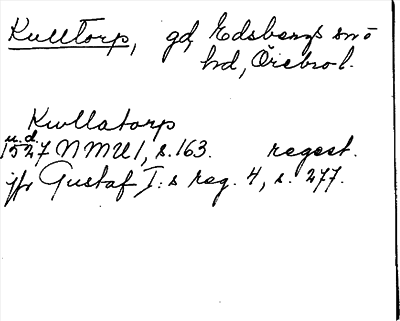 Kulltorp, gd, Edsbergs sn ö
hd, Örebro l.
Kwllatorp
u.d.
1527 NMU 1, s. 163. regest.
jfr Gustaf I:s reg. 4, s. 277.